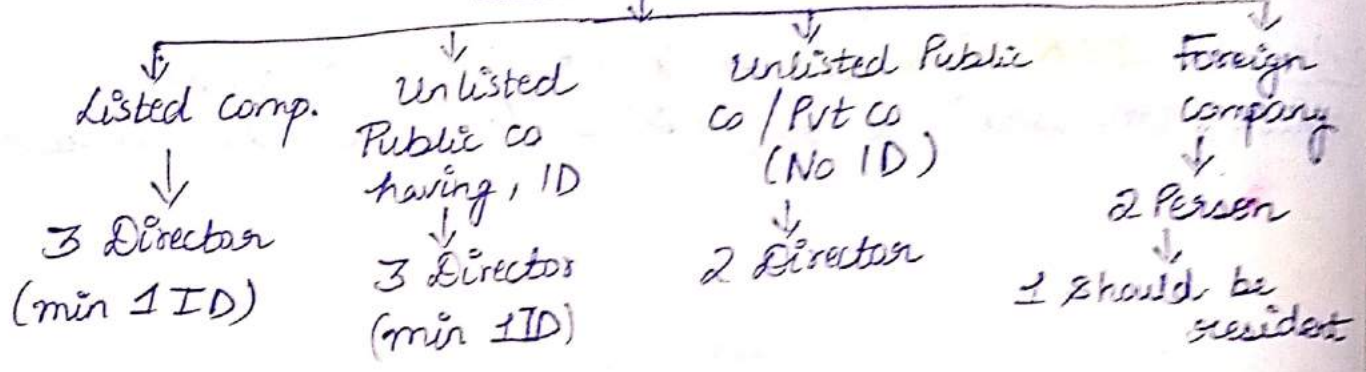 Listed comp.
3 Director
(min 1 ID)
Unlisted
Public co
having, ID
3 Director
(min 1ID)
Unlisted Public
co / Pvt co
(No ID)
2 Director
Foreign
company
2 Person
1 should be
resident